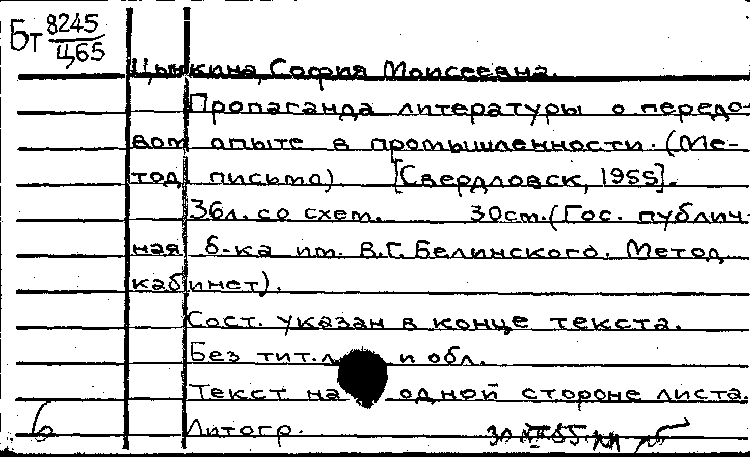 Бт 8245
Ц65
Цынкина, София Моисеевна.
Пропаганда литературы о передо-
вом опыте в промышленности. (Ме-
тод письмо) [Свердловск, 1955].
36л. со схем. 30см. (Гос. публич-
ная б-ка им. В.Г. Белинского. Метод
кабинет).
Сост. указан в конце текста.
Без тит. л. и обл.
Текст на одной стороне листа.
Литогр.
б